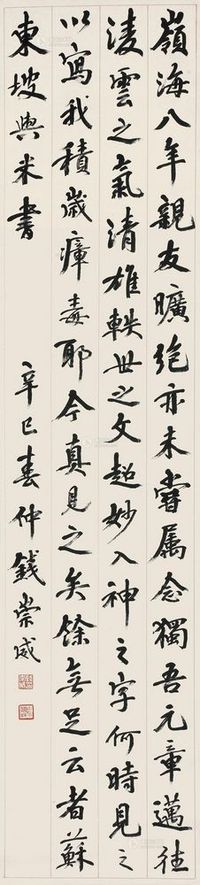 嶺海八年親友曠絕亦未嘗屬念獨吾元章邁往
淩雲之氣清雄軼世之文超妙入神之字何時見之
以寫我積歲瘴毒耶今真見之矣餘無足云者蘇
東坡與米書
辛巳春仲錢崇威